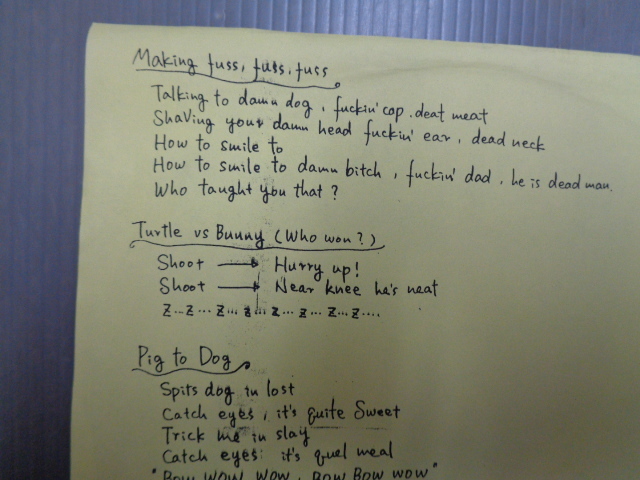 Making fuss, fuss, fuss
Talking to damn dog, fuckin' cop. deat meat
Shaving your damn head fuckin' ear, dead neck
How to smile to
How to smile to damn bitch, fuckin' dad, he is dead man.
Who taught you that?
Turtle vs Bunny (Who won?)
Shoot → Hurry up!
Shoot → Near knee he's neat
Z...Z...Z...Z...Z...Z...Z...Z....
Pig to Dog
Spits dog in lost
Catch eyes, it's quite Sweet
Trick me in slay
Catch eyes: it's quel meal
"Bow wow wow, Bow Bow wow"